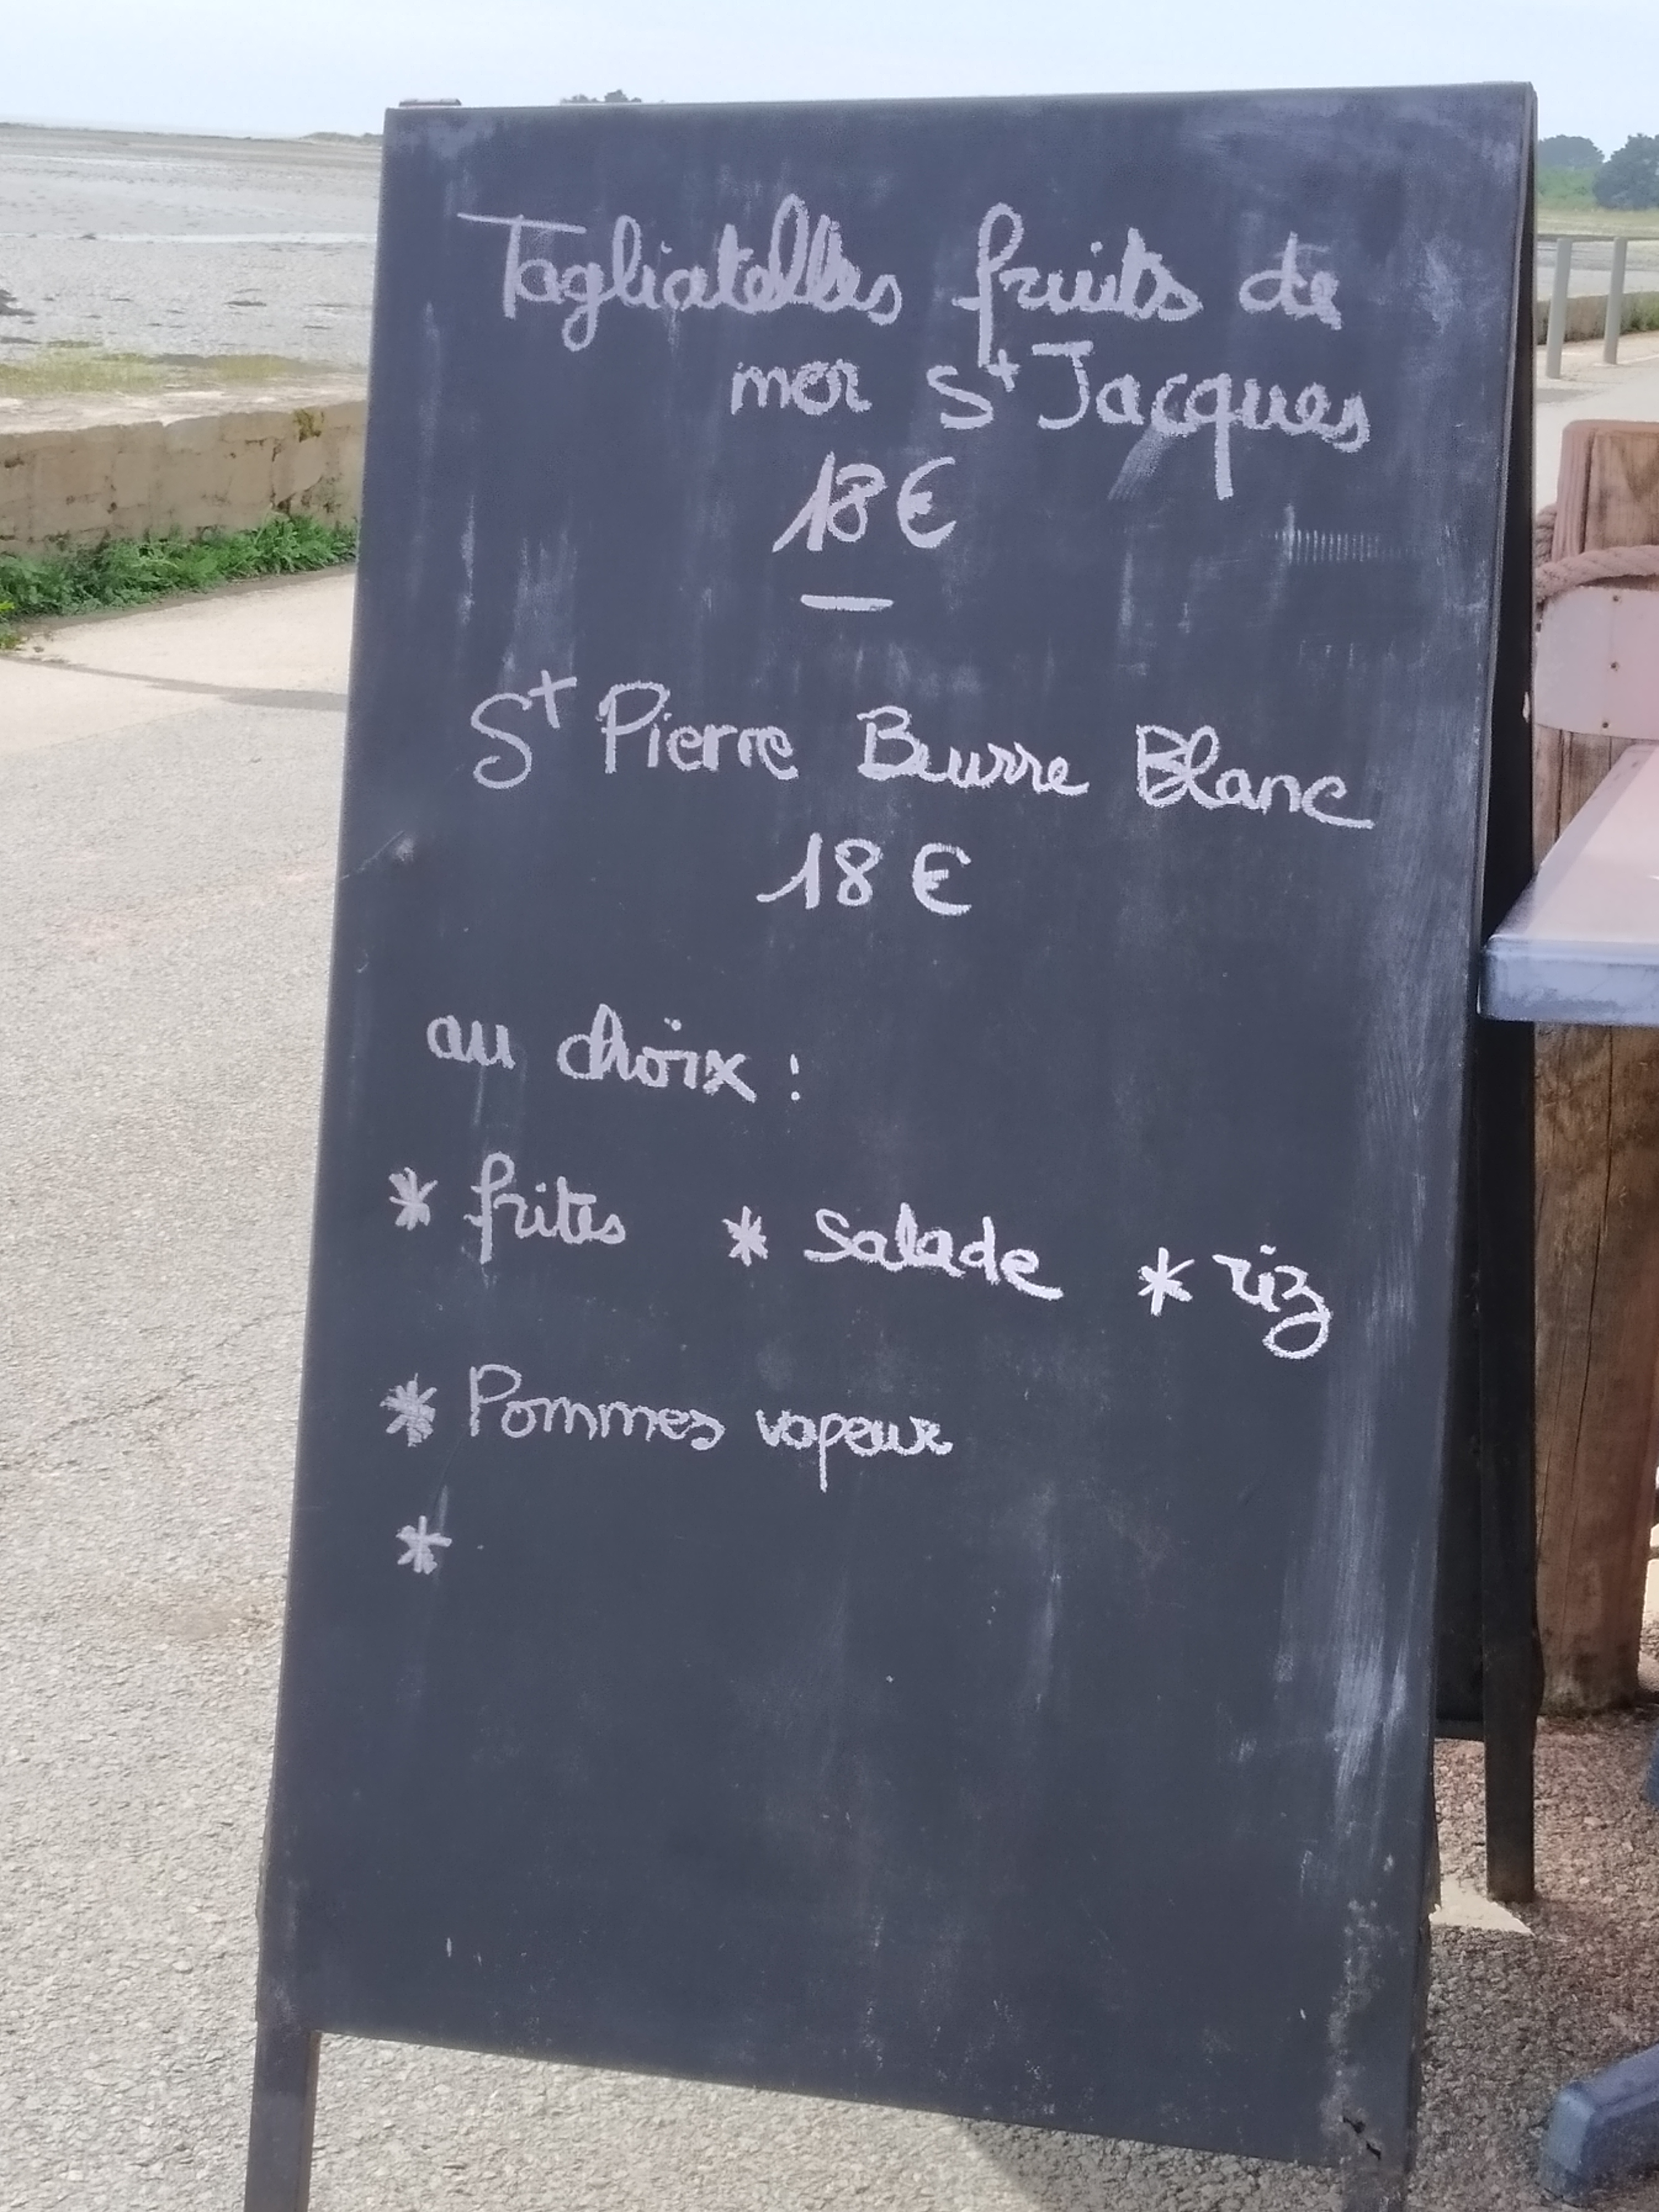 Tagliatelles fruits de
mer St Jacques
18€
—
St Pierre Beurre Blanc
18€
au choix :
* frites * Salade * riz
* Pommes vapeur
*